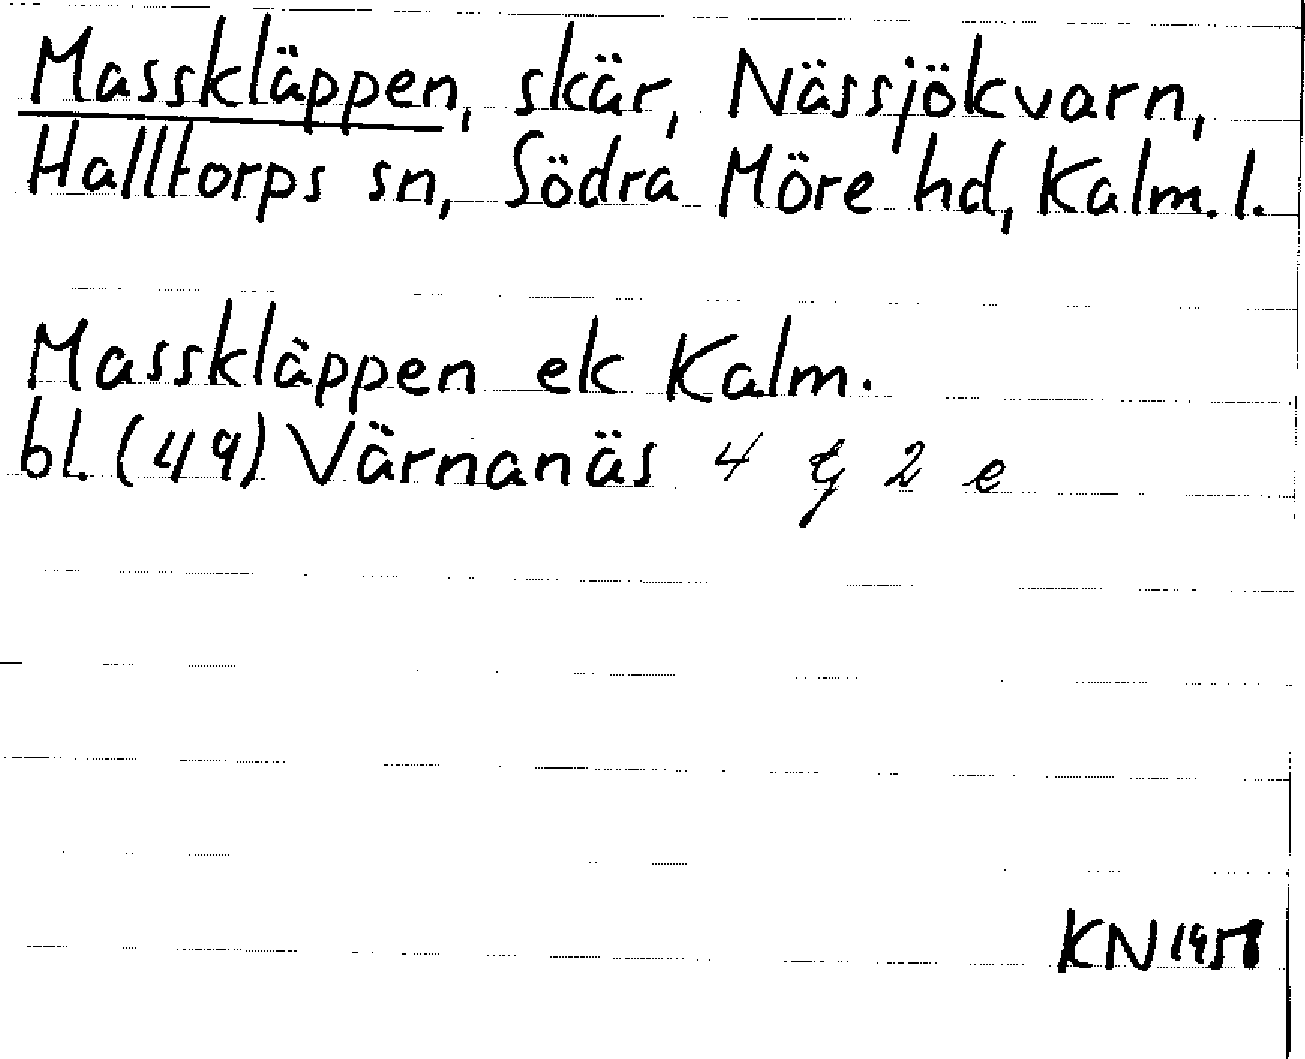 Masskläppen, skär, Nässjökvarn,
Halltorps sn, Södra Möre hd, Kalm. l.
Masskläppen ek Kalm.
bl. (49) Värnanäs 4 G 2 e
KN 1958